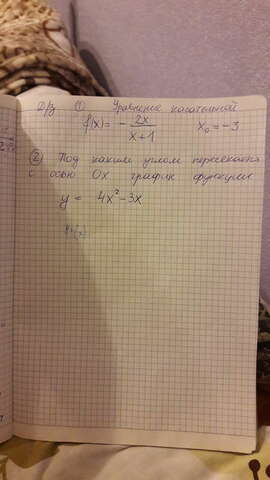 Д/з ① Уравнение касательной
f(x) = - 2x / x+1 x₀ = -3
② Под каким углом пересекается
с осью Ox график функции
y = 4x² - 3x